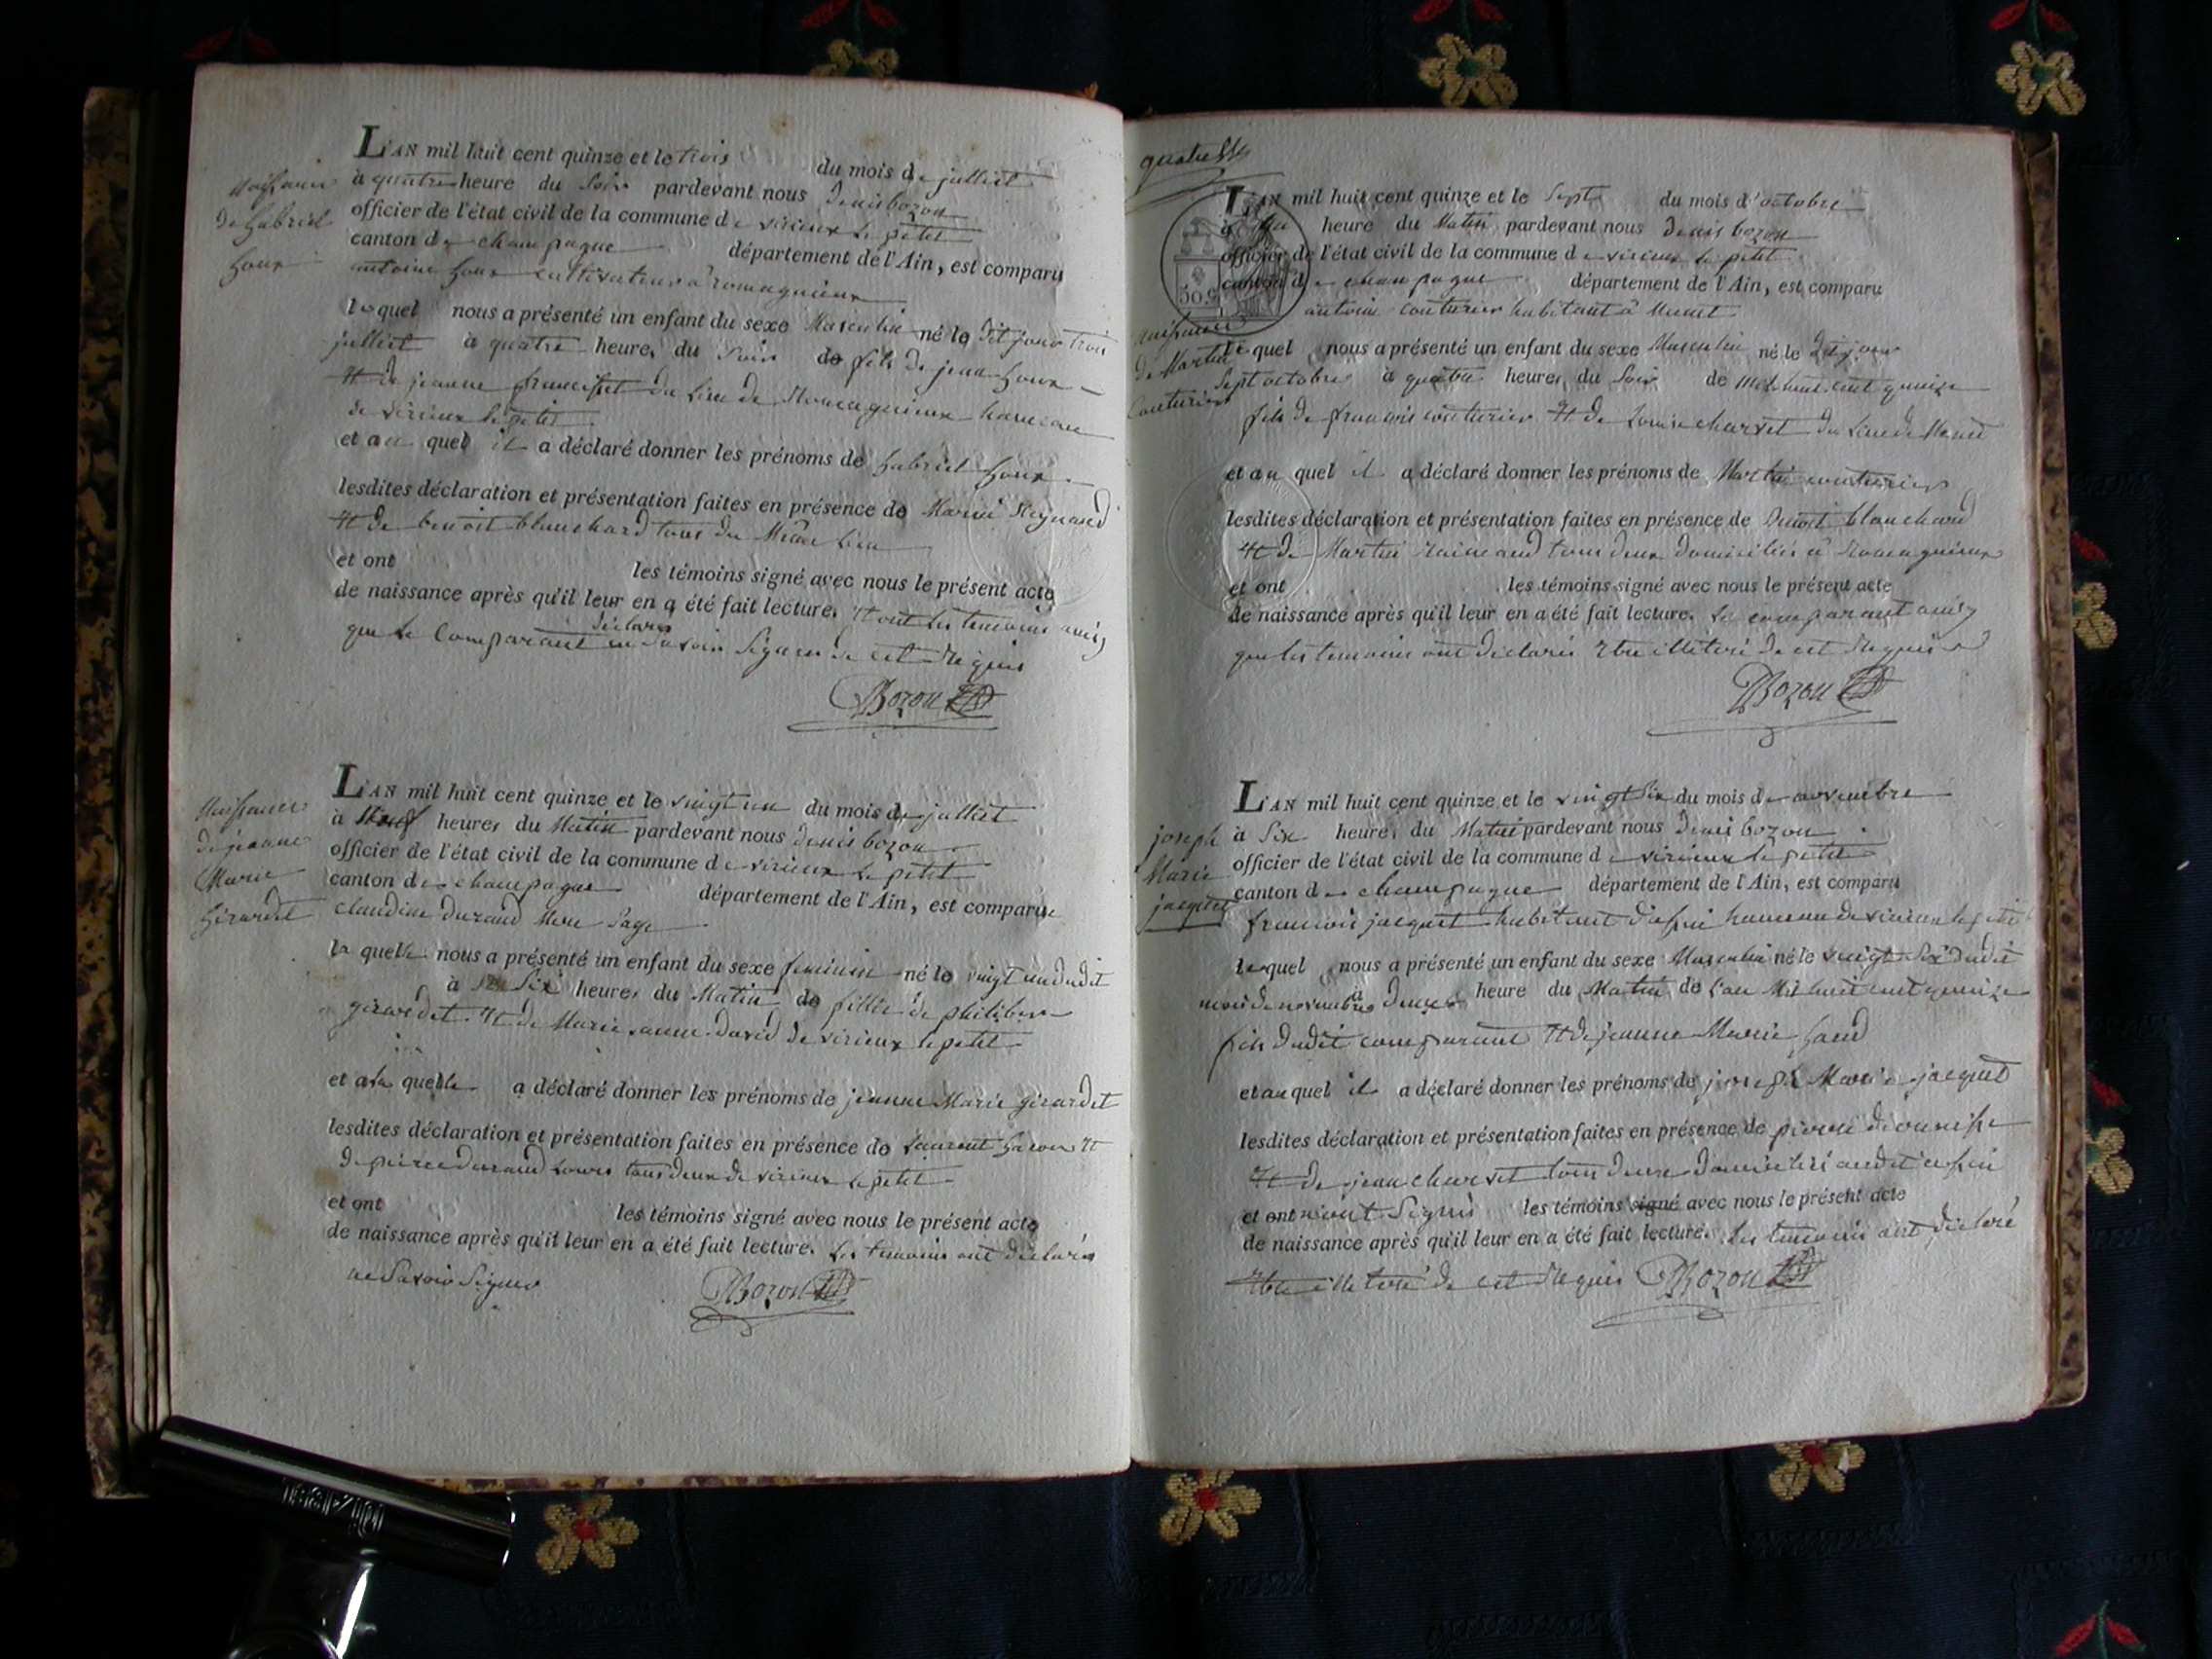 L'AN mil huit cent quinze et le trois du mois de julliet
à quatre heure du Soir pardevant nous denis bozon
officier de l'état civil de la commune de virieux le petit
canton de champagne département de l'Ain, est comparu
antoine cultivateur à romagnieux
lequel nous a présenté un enfant du sexe Masculin né le dit jour trois
julliet à quatre heures du Soir de fils de jean
Et de jeanne du Lieu de Romagnieux hameau
de virieux le petit
et au quel il a déclaré donner les prénoms de gabriel
lesdites déclaration et présentation faites en présence de Reynaud
Et de benoit blanchard tous du Même Lieu
et ont les témoins signé avec nous le présent acte
de naissance après qu'il leur en a été fait lecture. Et ont Les temoins
que Le Comparant declaré ne Savoir Signer de cet Requis
Bozon
Naissance
de gabriel
L'AN mil huit cent quinze et le vingt un du mois de julliet
à heures du Matin pardevant nous denis bozon
officier de l'état civil de la commune de virieux le petit
canton de champagne département de l'Ain, est comparue
claudine durand Mere Sage
la quelle nous a présenté un enfant du sexe feminin né le vingt un dudit
à Six heures du Matin de fillie de philiber
girardet Et de Marie anne david de virieux le petit
et a la quelle a déclaré donner les prénoms de jeanne Marie girardet
lesdites déclaration et présentation faites en présence de Laurent Et
de pierre durand tous deux de virieux le petit
et ont les témoins signé avec nous le présent acte
de naissance après qu'il leur en a été fait lecture. Les temoins ont déclarés
ne Savoir Signer Bozon
Naissance
de jeanne
Marie
girardet
L'AN mil huit cent quinze et le Sept du mois d'octobre
heure du Matin pardevant nous denis bozon
officier de l'état civil de la commune de virieux le petit
canton de champagne département de l'Ain, est comparu
antoine couturier habitant à Munet
le quel nous a présenté un enfant du sexe Masculin né le dit jour
Sept octobre à quatre heures du Soir de mil huit cent quinze
fils de francois couturier Et de Louise charvet du Lieu de Munet
et au quel il a déclaré donner les prénoms de Martin couturier
lesdites déclaration et présentation faites en présence de Benoit blanchard
Et de Martin tous deux domiciliés à romagnieux
et ont les témoins signé avec nous le présent acte
de naissance après qu'il leur en a été fait lecture. Le comparant
que les temoins ont declarés Etre illiteré de cet Requis
Bozon
50c
naissance
de Martin
Couturier
L'AN mil huit cent quinze et le vingt Six du mois de novembre
à Six heures du Matin pardevant nous denis bozon
officier de l'état civil de la commune de virieux le petit
canton de champagne département de l'Ain, est comparu
francois jacquet habitant hameau de virieux le petit
lequel nous a présenté un enfant du sexe Masculin né le vingt Six dudit
mois de novembre à deux heure du Matin de l'an Mil huit cent quinze
fils dudit comparant Et de jeanne Marie
et au quel il a déclaré donner les prénoms de joseph Marie jacquet
lesdites déclaration et présentation faites en présence de pierre
Et de jean charvet tous deux domiciliés
et ont n'ont Signés les témoins signé avec nous le présent acte
de naissance après qu'il leur en a été fait lecture. Les temoins ont déclaré
Etre illiteré de cet Requis Bozon
joseph
Marie
jacquet